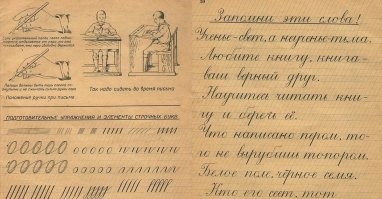 Так надо сидеть во время письма
Положение ручки при письме
ПОДГОТОВИТЕЛЬНЫЕ УПРАЖНЕНИЯ И ЭЛЕМЕНТЫ СТРОЧНЫХ БУКВ.
Запомни эти слова!
Ученье-свет, а неученье-тьма.
Любите книгу, книга-
ваш верный друг.
Научись читать кни-
гу и береги её.
Что написано пером, то-
го не вырубишь топором.
Белое поле, чёрное семя.
Кто его сеет, тот